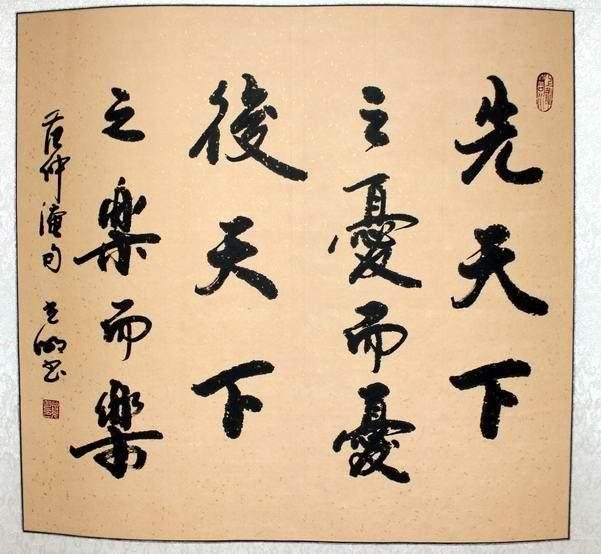 先天下
之憂而憂
後天下
之樂而樂
范仲淹句 書